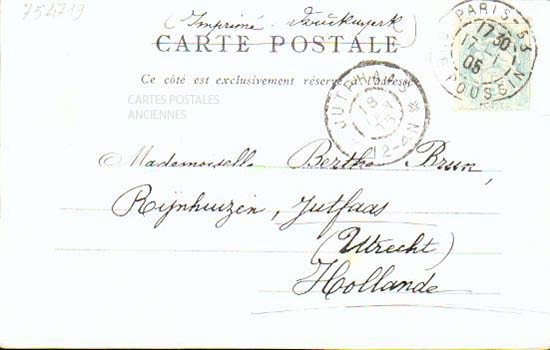 754719
Imprimé. Drukwerk
CARTE POSTALE
Ce côté est exclusivement réservé à l'adresse
CARTES POSTALES
ANCIENNES
PARIS. 53
17 30
17 - 1
05
POUSSIN
POSTES
JUTPHAAS
18
05
12-4N
Mademoiselle Berthe Brun,
Rijnhuizen, Jutfaas
(Utrecht)
Hollande